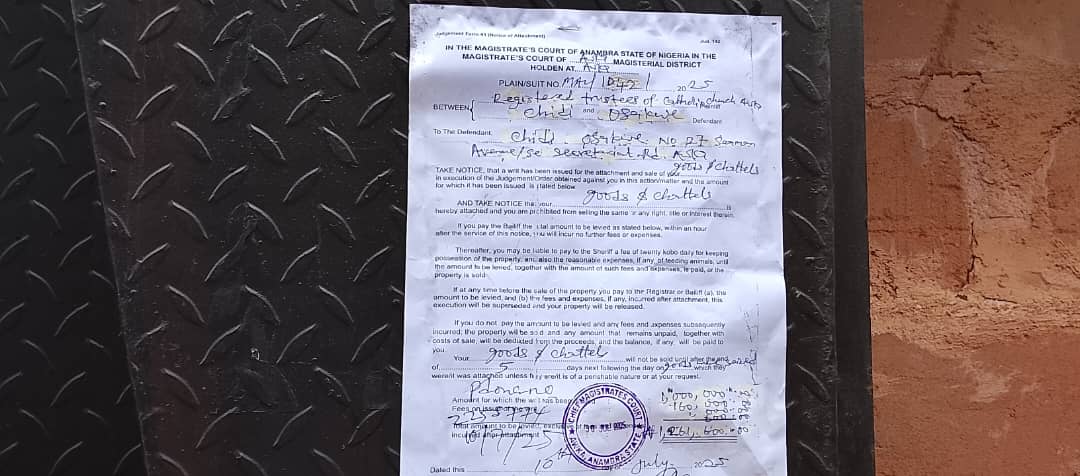 Judgement Form 41 (Notice of Attachment)
Jud. 142
IN THE MAGISTRATE'S COURT OF ANAMBRA STATE OF NIGERIA IN THE
MAGISTRATE'S COURT OF MAGISTERIAL DISTRICT
HOLDEN AT
PLAIN/SUIT NO. 2025
Registered trustees of Catholic church
BETWEEN and Osakwe
Defendant
To The Defendant
Avenue
TAKE NOTICE, that a writ has been issued for the attachment and sale of your goods & chattels
in execution of the Judgement/Order obtained against you in this action/matter and the amount
for which it has been issued is stated below
AND TAKE NOTICE that your goods & chattels is
hereby attached and you are prohibited from selling the same or any right, title or interest therein.
If you pay the Bailiff the total amount to be levied as stated below, within an hour
after the service of this notice, you will incur no further fees or expenses.
Thereafter, you may be liable to pay to the Sheriff a fee of twenty kobo daily for keeping
possession of the property, and also the reasonable expenses, if any, of feeding animals, until
the amount to be levied, together with the amount of such fees and expenses, is paid, or the
property is sold.
If at any time before the sale of the property you pay to the Registrar or Bailiff (a), the
amount to be levied, and (b) the fees and expenses, if any, incurred after attachment, this
execution will be superseded and your property will be released.
If you do not pay the amount to be levied and any fees and expenses subsequently
incurred, the property will be sold and any amount that remains unpaid, together with
costs of sale, will be deducted from the proceeds, and the balance, if any, will be paid to
you.
Your goods & chattel will not be sold until after the end
of 5 days next following the day on which they
were unless they is of a perishable nature or at your request.
Amount for which the writ has been
Fees on issue
Total amount to be levied,
incurred after attachment
CHIEF MAGISTRATES COURT
ANAMBRA STATE
Dated this 10th July 2025